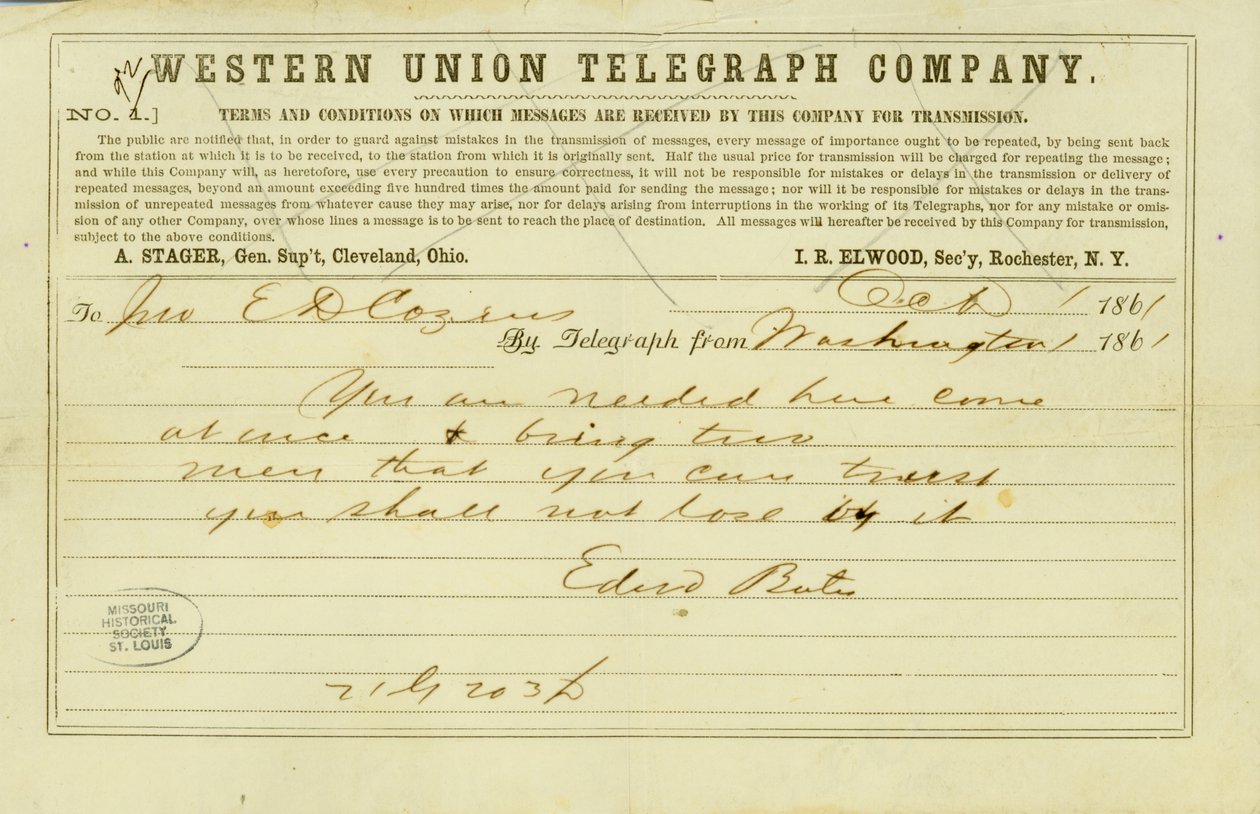 WESTERN UNION TELEGRAPH COMPANY.
NO. 1.] TERMS AND CONDITIONS ON WHICH MESSAGES ARE RECEIVED BY THIS COMPANY FOR TRANSMISSION.
The public are notified that, in order to guard against mistakes in the transmission of messages, every message of importance ought to be repeated, by being sent back
from the station at which it is to be received, to the station from which it is originally sent. Half the usual price for transmission will be charged for repeating the message;
and while this Company will, as heretofore, use every precaution to ensure correctness, it will not be responsible for mistakes or delays in the transmission or delivery of
repeated messages, beyond an amount exceeding five hundred times the amount paid for sending the message; nor will it be responsible for mistakes or delays in the trans-
mission of unrepeated messages from whatever cause they may arise, nor for delays arising from interruptions in the working of its Telegraphs, nor for any mistake or omis-
sion of any other Company, over whose lines a message is to be sent to reach the place of destination. All messages will hereafter be received by this Company for transmission,
subject to the above conditions.
A. STAGER, Gen. Sup't, Cleveland, Ohio. I. R. ELWOOD, Sec'y, Rochester, N. Y.
Oct 1 1861
To Jno E D Cozens
By Telegraph from Washington 1 1861
You are needed here come
at once & bring two
men that you can trust
you shall not lose by it
Edwd Bates
MISSOURI
HISTORICAL
SOCIETY
ST. LOUIS